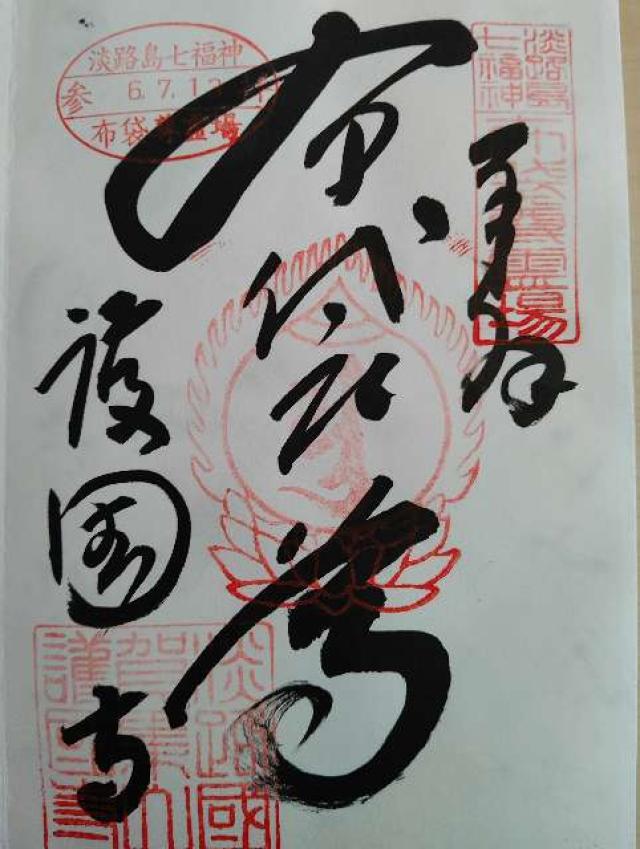 淡路島七福神
布袋尊霊場
奉拝
布袋尊
淡路島七福神
参 6.7.13 拝
布袋尊霊場
護國寺
淡路國
賀集